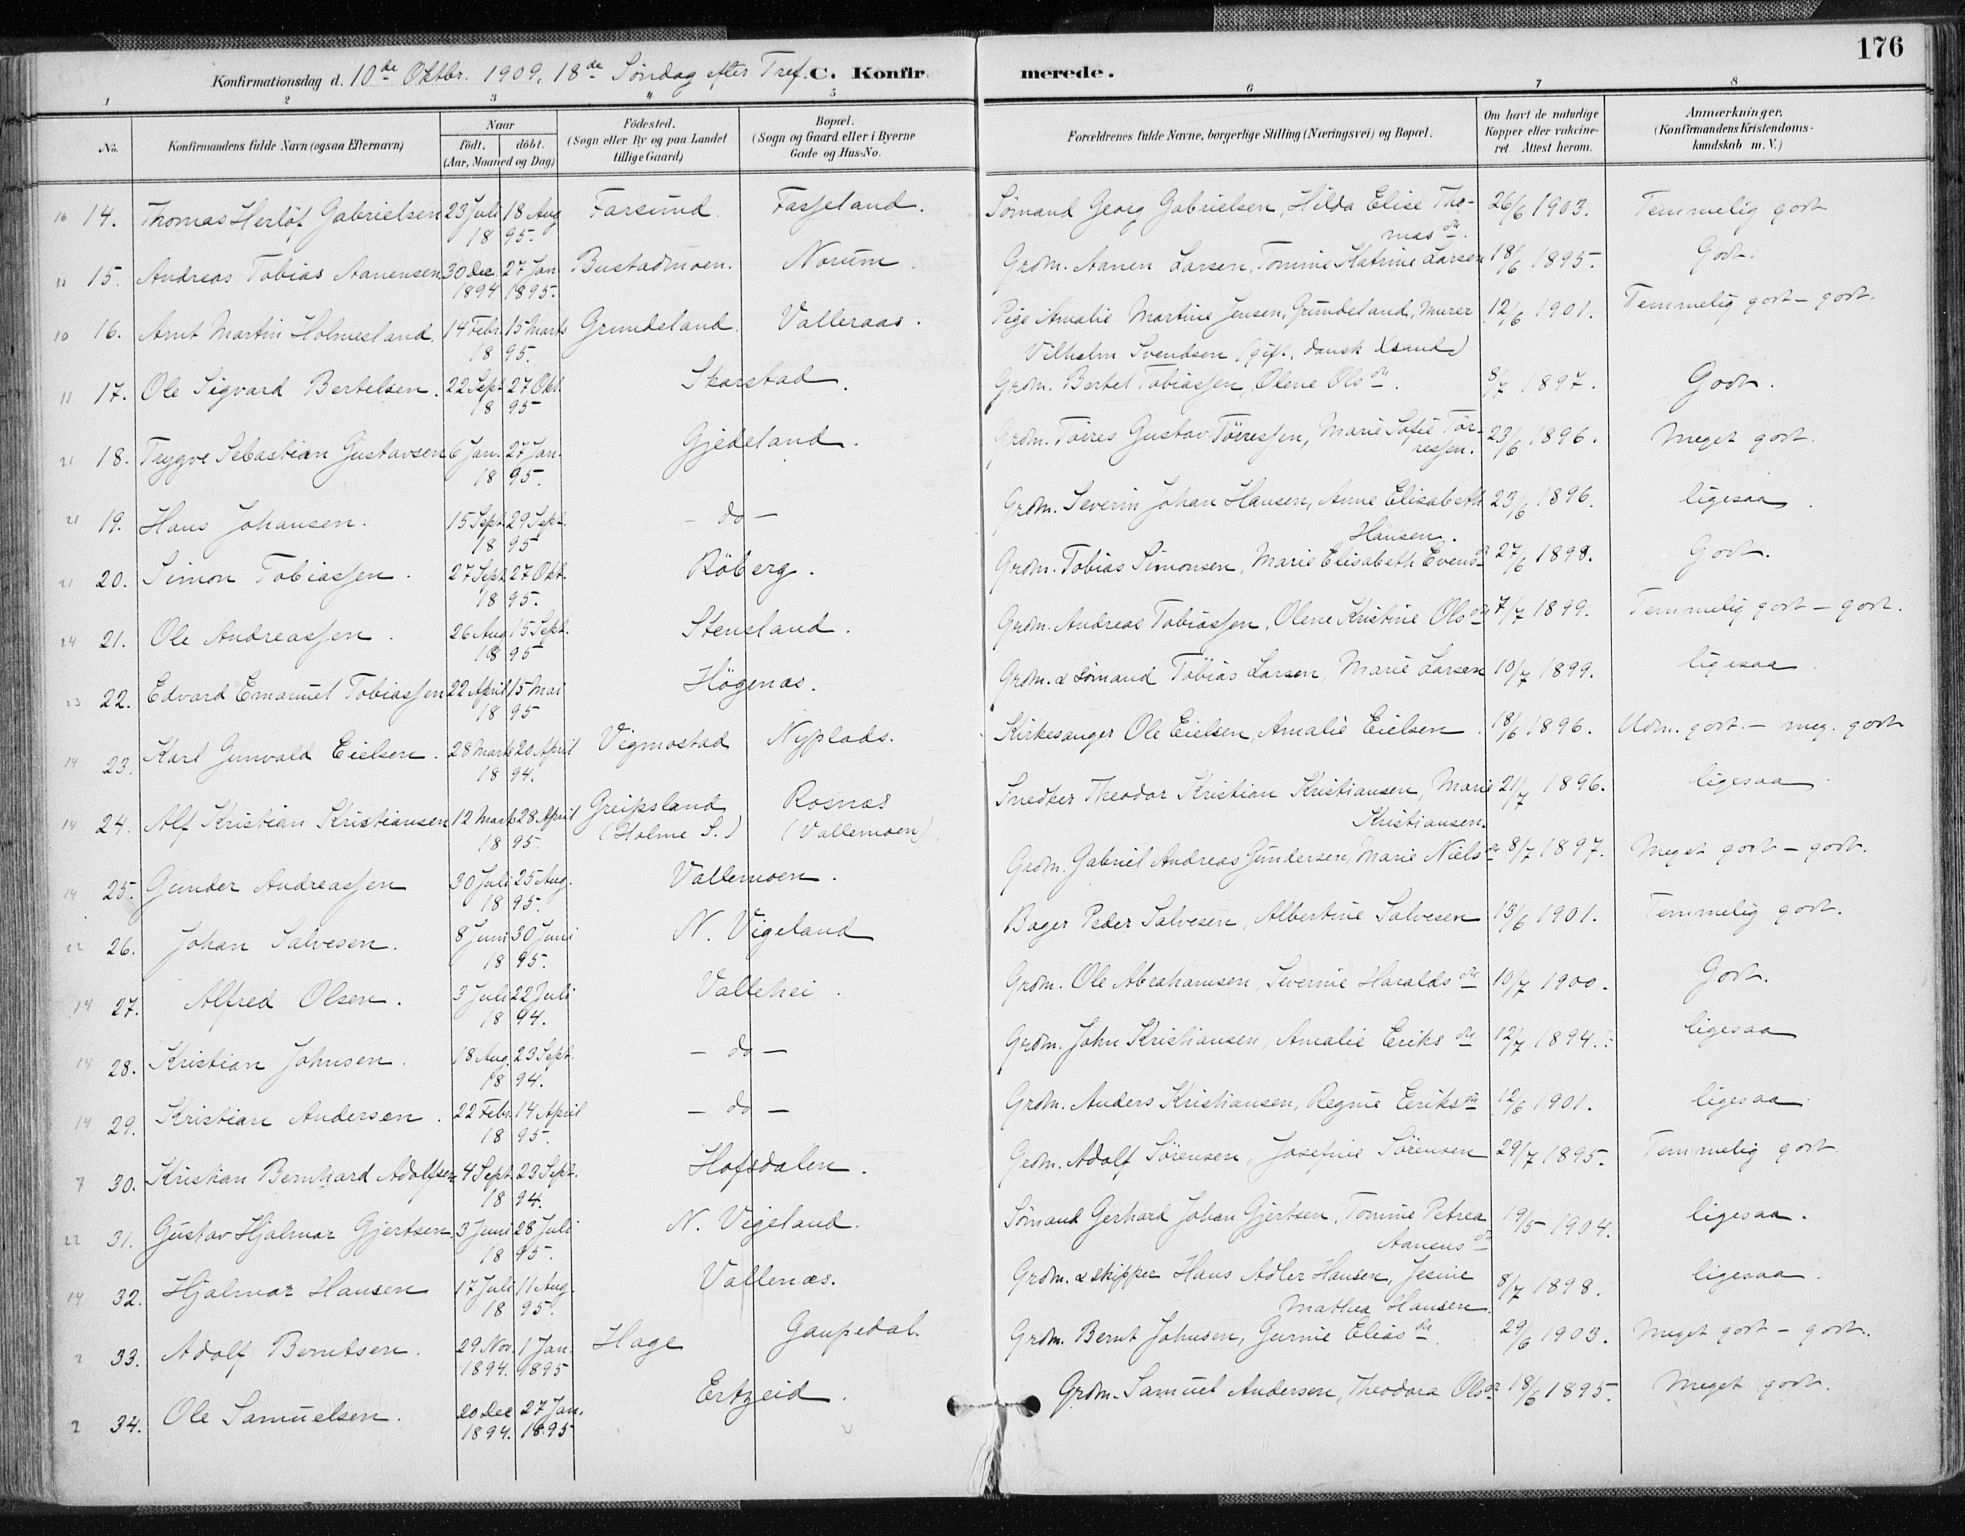 176
Konfirmationsdag d. 10de Oktbr. 1909. 18de Søndag efter Tref. C. Konfirmerede.
1 2 3 4 5 6 7 8
No. Konfirmandens fulde Navn (ogsaa Efternavn) Naar födt. döbt. (Aar, Maaned og Dag) Födested. (Sogn eller By og paa Landet tillige Gaard) Bopæl. (Sogn og Gaard eller i Byerne Gade og Hus-No. Forældrenes fulde Navne, borgerlige Stilling (Næringsvei) og Bopæl. Om havt de naturlige Kopper eller vakcineret. Attest herom. Anmærkninger. (Konfirmandens Kristendomskundskab m. V.)
16 14. Thomas Herlöf Gabrielsen 23 Juli 18 Aug 1895. Farsund. Fasseland. Sömand Georg Gabrielsen, Hilda Elise Thomasdtr. 26/6 1903. Temmelig godt
11 15. Andreas Tobias Aanensen 30 Dec 1894 27 Jan 1895. Bustadmoen. Norum. Grdm. Aanen Larsen, Tomine Katrine Larsen 18/6 1895. Godt.
10 16. Arnt Martin Holmesland. 14 Febr. 15 Marts 1895. Grundeland. Valleraas. Pige Amalie Martine Jensen, Grundeland, Murer
Vilhelm Svendsen (gift, dansk Xsand) 12/6 1901. Temmelig godt - godt.
11 17. Ole Sigvard Bertelsen. 22 Sept 27 Okt. 1895 Skarstad. Grdm. Bertel Tobiassen, Olene Olsdtr. 8/7 1897. Godt.
21 18. Trygve Sebastian Gustavsen 6 Jan. 27 Jan. 1895. Gjedeland. Grdm. Törres Gustav Törressen, Marie Sofie Törressen. 23/6 1896. Meget godt.
21 19. Hans Johansen. 15 Sept. 29 Sept. 1895 - do - Grdm. Severin Johan Hansen, Anne Elisabeth Hansen. 23/6 1896. ligesaa.
21 20. Simon Tobiassen. 27 Sept 27 Okt. 1895. Röberg. Grdm. Tobias Simonsen, Marie Elisabeth Evensdtr 27/6 1898. Godt.
24 21. Ole Andreassen. 26 Aug 15 Sept. 1895 Stensland. Grdm. Andreas Tobiassen, Olene Kristine Olsdtr 7/7 1899. Temmelig godt - godt.
23 22. Edvard Emanuel Tobiassen 22 April 15 Mai 1895 Högenæs. Grdm. & sömand Tobias Larsen, Marie Larsen 10/7 1899. ligesaa
14 23. Karl Gunvald Eielsen. 28 Marts 20 April 1894. Vigmostad Nyplads. Kirkesanger Ole Eielsen, Amalie Eielsen. 18/6 1896. Udm. godt - meg. godt
14 24. Alf Kristian Kristiansen 12 Marts 28 April 1895. Greipsland (Holme S.) Rosnæs (Vallemoen) Snedker Theodor Kristian Kristiansen, Marie Kristiansen. 21/7 1896. ligesaa
14 25. Gunder Andreassen 30 Juli 25 Aug. 1895. Vallemoen. Grdm. Gabriel Andreas Gundersen, Marie Nielsdtr 8/7 1897. Meget godt - godt.
22 26. Johan Salvesen. 8 Juni 30 Juni 1895. N. Vigeland Bager Peder Salvesen, Albertine Salvesen 13/6 1901. Temmelig godt.
14 27. Alfred Olsen. 3 Juli 22 Juli 1894. Vallehei. Grdm. Ole Abrahamsen, Severine Haraldsdtr 10/7 1900. Godt.
14 28. Kristian Johnsen. 18 Aug. 23 Sept. 1894. - do - Grdm. John Kristiansen, Amalie Eriksdtr 12/7 1894. ligesaa
14 29. Kristian Andersen. 22 Febr. 14 April 1895. - do - Grdm. Anders Kristiansen, Regine Eriksdtr 12/6 1901. ligesaa
7 30. Kristian Bernhard Adolfsen 4 Sept. 23 Sept. 1894. Hofsdalen. Grdm. Adolf Sörensen, Josefine Sörensen 29/7 1895. Temmelig godt
22 31. Gustav Hjalmar Gjertsen. 3 Juni 28 Juli 1895. N. Vigeland. Sömand Gerhard Johan Gjertsen, Tomine Petrea Aanensdtr 19/5 1904. ligesaa.
14 32. Hjalmar Hansen 17 Juli 11 Aug. 1895. Vallenæs. Grdm. & skipper Hans Adler Hansen, Jesine Mathea Hansen. 8/7 1898. ligesaa
2 33. Adolf Berntsen. 29 Nov. 1894. 1 Jan. 1895 Hage Gaupedal. Grdm. Bernt Johnsen, Gurine Eliasdtr. 29/6 1903. Meget godt - godt.
2 34. Ole Samuelsen. 20 Dec 1894. 27 Jan. 1895 Ertzeid. Grdm. Samuel Andersen, Theodora Olsdtr 18/6 1895. Meget godt.